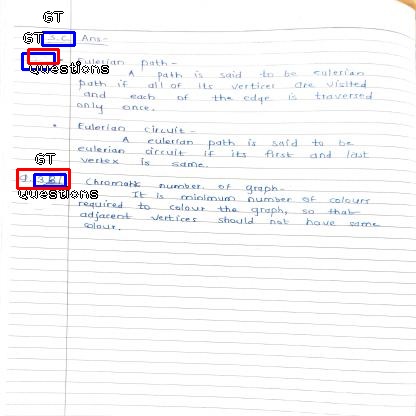 GT
GT 3.C. Ans-
Eulerian path-
Questions
A path is said to be eulerian
path if all of its vertices are visited
and each of the edge is traversed
only once.
• Eulerian circuit-
A eulerian path is said to be
eulerian circuit if its first and last
vertex is same.
GT
Chromatic number of graph-
Questions
It is minimum number of colours
required to colour the graph, so that
adjacent vertices should not have same
colour.